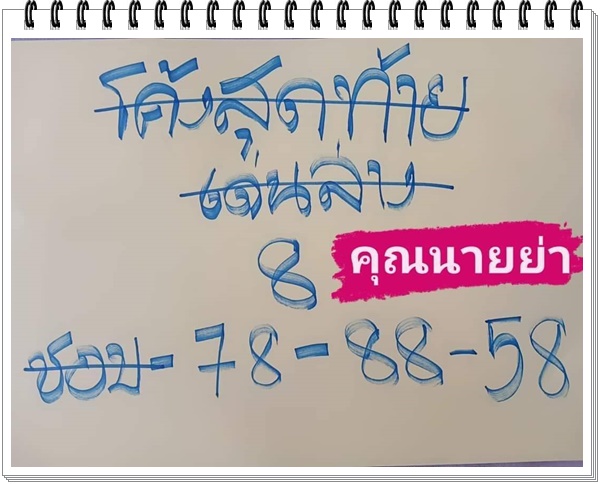 โค้งสุดท้าย
เด่นล่าง
8
คุณนายย่า
ชอบ - 78 - 88 - 58